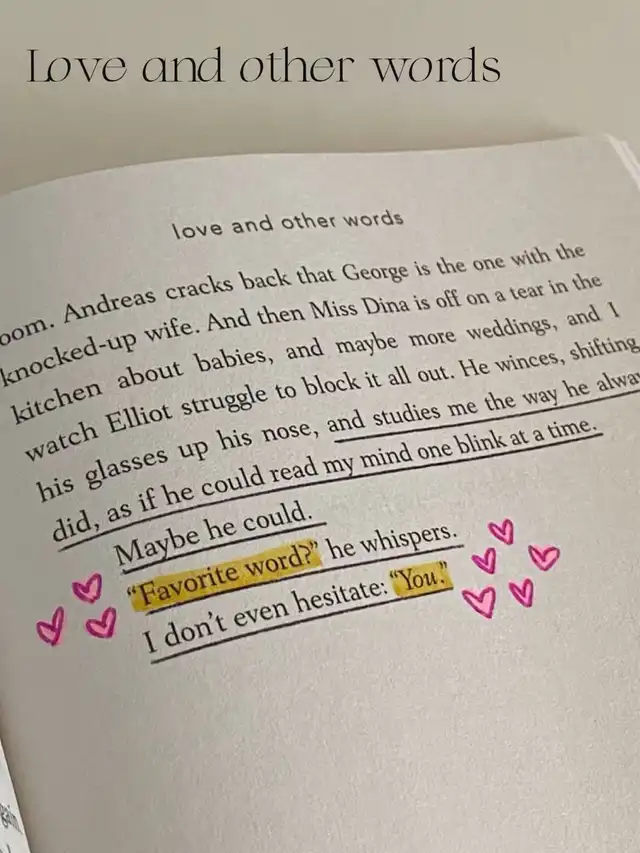 Love and other words
love and other words
oom. Andreas cracks back that George is the one with the
knocked-up wife. And then Miss Dina is off on a tear in the
kitchen about babies, and maybe more weddings, and I
watch Elliot struggle to block it all out. He winces, shifting
his glasses up his nose, and studies me the way he alwa
did, as if he could read my mind one blink at a time.
Maybe he could.
“Favorite word?” he whispers.
I don’t even hesitate: “You.”